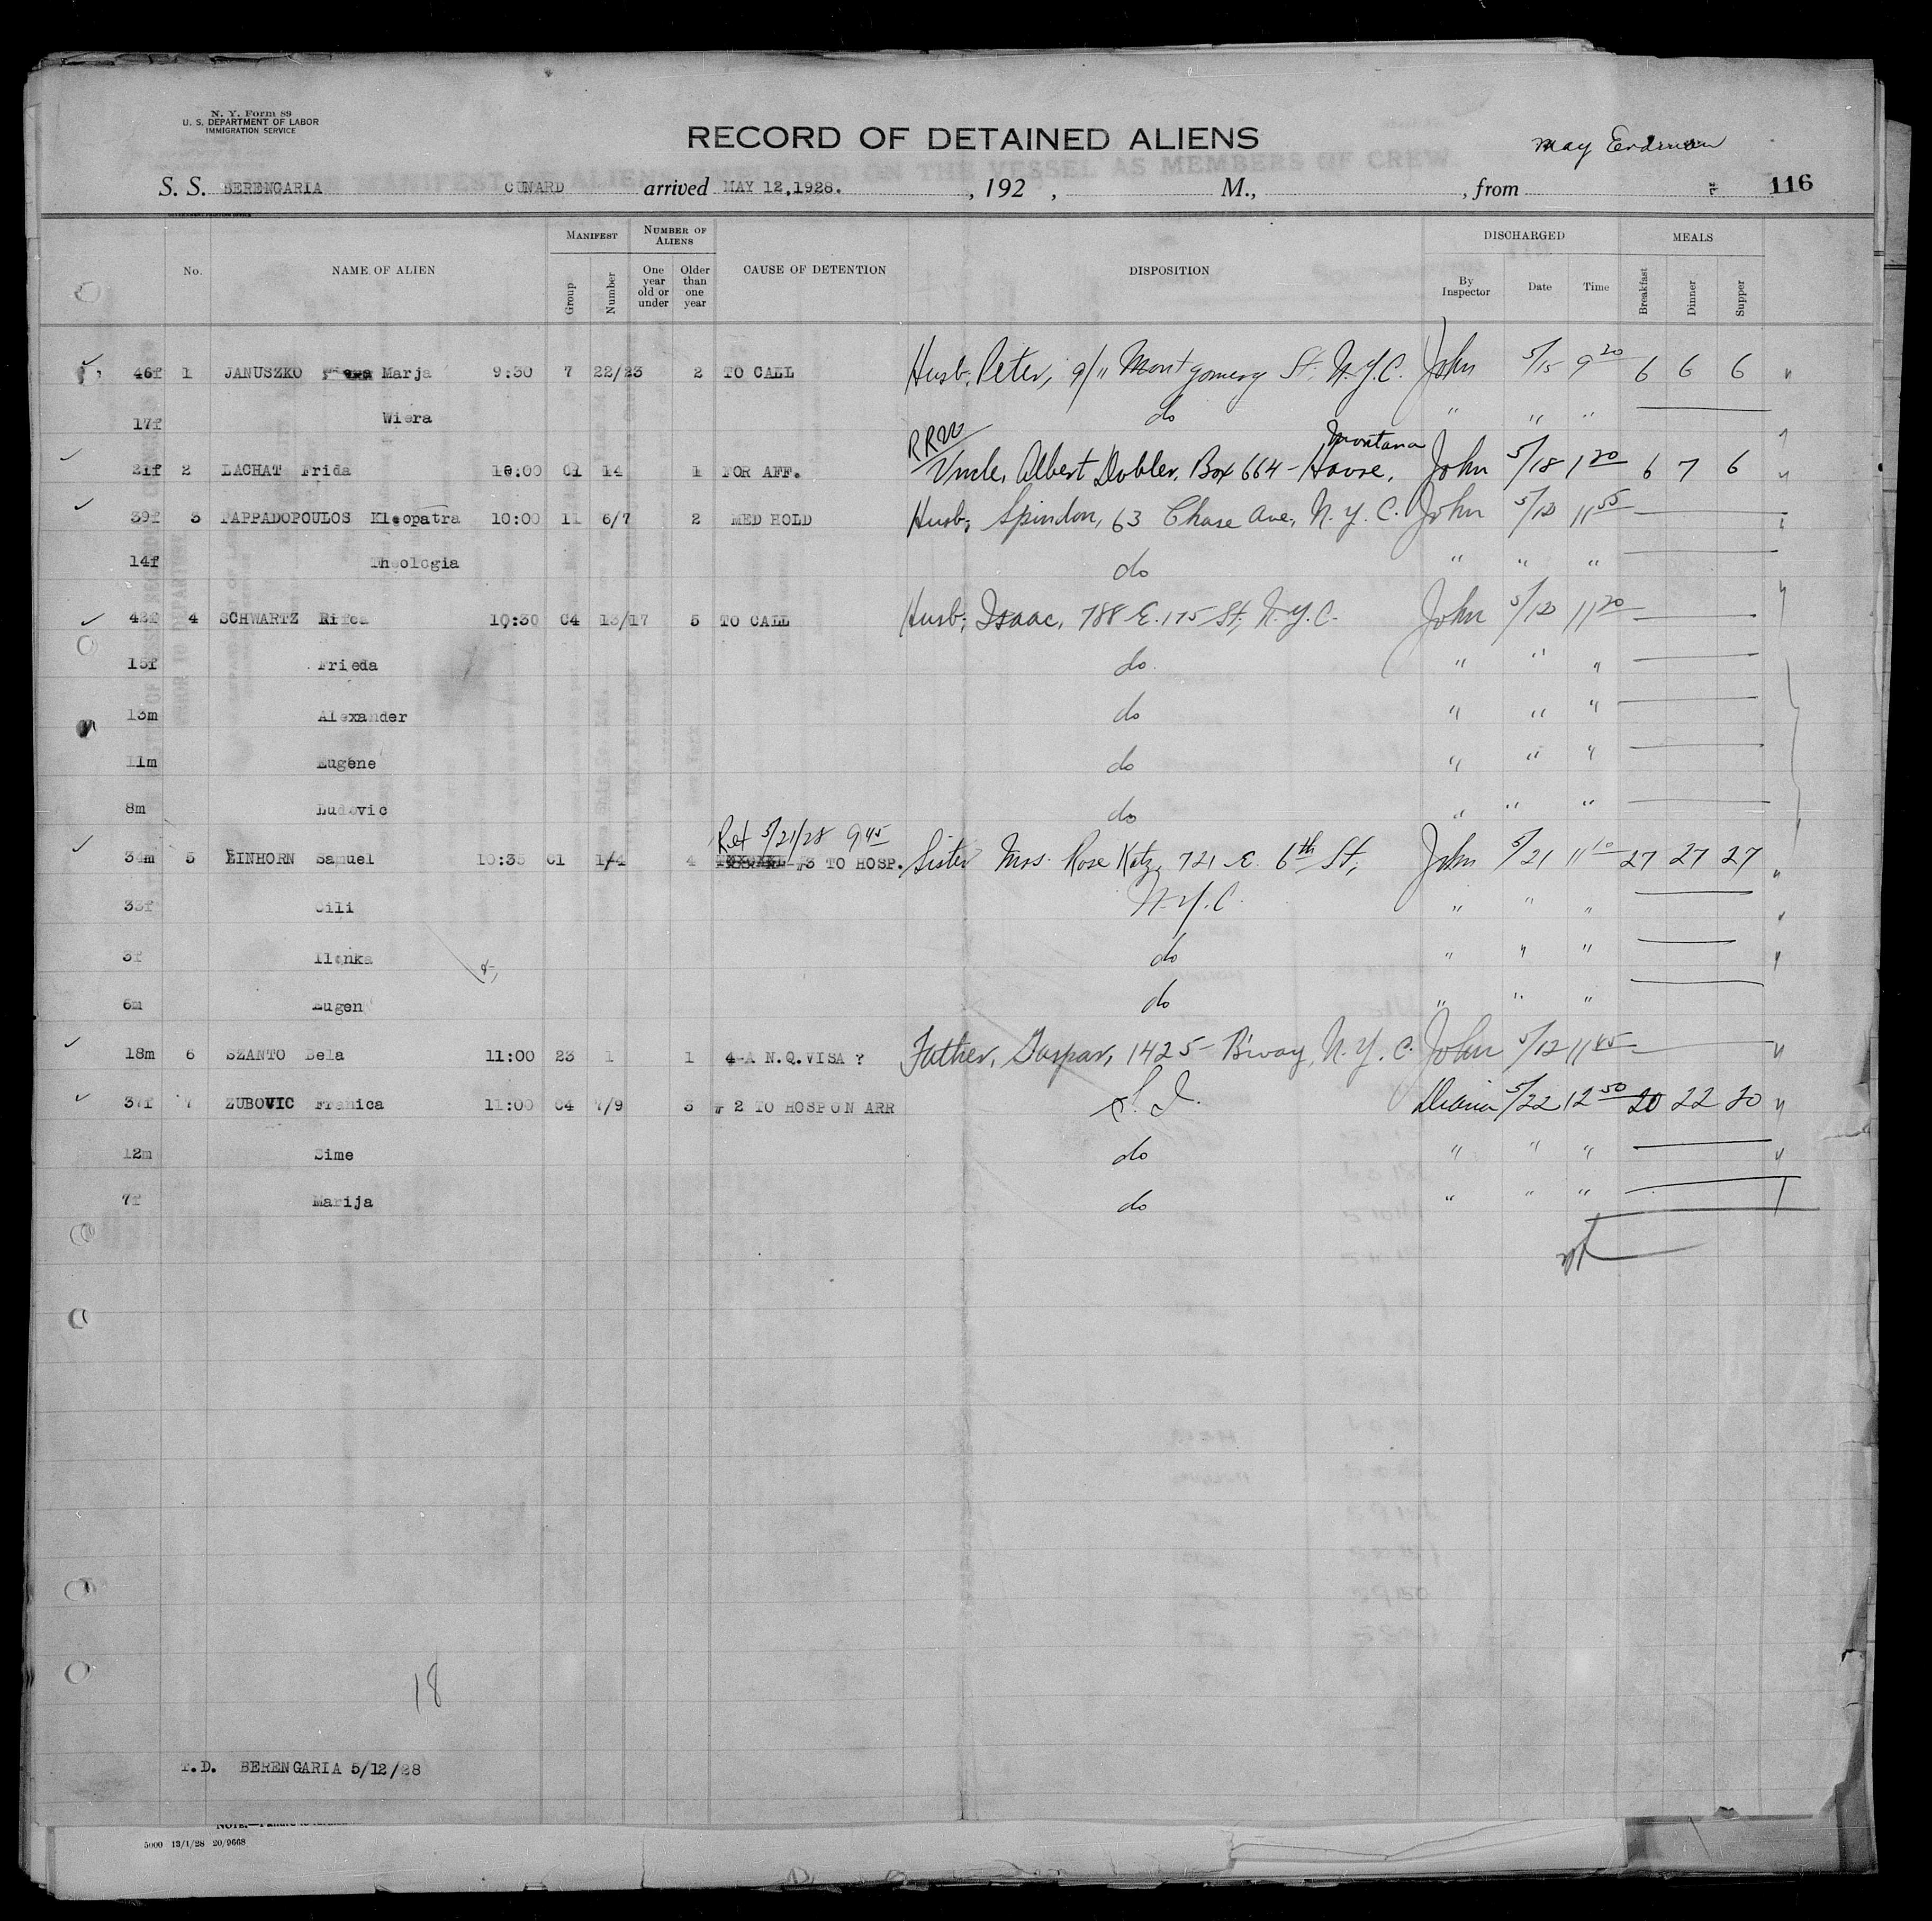 N. Y. Form 89
U. S. DEPARTMENT OF LABOR
IMMIGRATION SERVICE
RECORD OF DETAINED ALIENS
May
S. S. BERENGARIA CUNARD arrived MAY 12,1928. , 192 , M., , from 116
No. NAME OF ALIEN MANIFEST Group Number NUMBER OF ALIENS One year old or under Older than one year CAUSE OF DETENTION DISPOSITION DISCHARGED By Inspector Date Time MEALS Breakfast Dinner Supper
46f 1 JANUSZKO Marja 9:30 7 22/23 2 TO CALL Husb; Peter, 9/11 Montgomery St. N.Y.C. John 5/15 9 20 6 6 6 "
17f Wiera do " " "
RRW Montana
21f 2 LACHAT Frida 10:00 C1 14 1 FOR AFF. Uncle, Albert Dobler, Box 664 - Havre, John 5/18 1 20 6 7 6 "
39f 3 PAPPADOPOULOS Kleopatra 10:00 11 6/7 2 MED HOLD Husb; Spiridon, 63 Chase Ave, N.Y.C. John 5/12 11 55
14f Theologia do " " "
42f 4 SCHWARTZ Rifca 10:30 C4 13/17 5 TO CALL Husb; Isaac, 788 E. 175 St, N.Y.C. John 5/12 11 20
15f Frieda do. " " "
13m Alexander do " " "
11m Eugene do " " "
8m Ludovic do " " "
Ret 5/21/28 9 45
34m 5 EINHORN Samuel 10:35 C1 1/4 4 #3 TO HOSP. Sister Mrs. Rose Katz, 721 E. 6th St, John 5/21 11 10 27 27 27 "
33f Cili N.Y.C. " " "
3f Ilonka do " " "
6m Eugen do " " "
18m 6 SZANTO Bela 11:00 23 1 1 4-A N.Q.VISA ? Father, Gaspar, 1425 - B'way, N.Y.C. John 5/12 11 45 "
37f 7 ZUBOVIC Franica 11:00 C4 7/9 3 # 2 TO HOSP ON ARR S. I. 5/22 12 50 20 22 20 "
12m Sime do " " " "
7f Marija do " " "
18
T.D. BERENGARIA 5/12/28
5000 13/1/28 20/9668